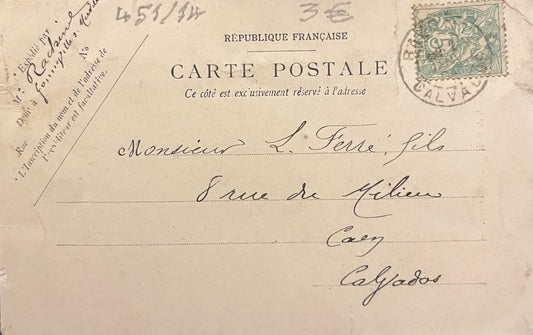 451/14
3 €
RÉPUBLIQUE FRANÇAISE
CARTE POSTALE
Ce côté est exclusivement réservé à l'adresse
Expédié par
M.
Demt à
Rue No
"L'Inscription du nom et de l'adresse de
l'expéditeur est facultative."
CALVADOS
Monsieur L. Ferré, fils
8 rue du Milieu
Caen
Calvados